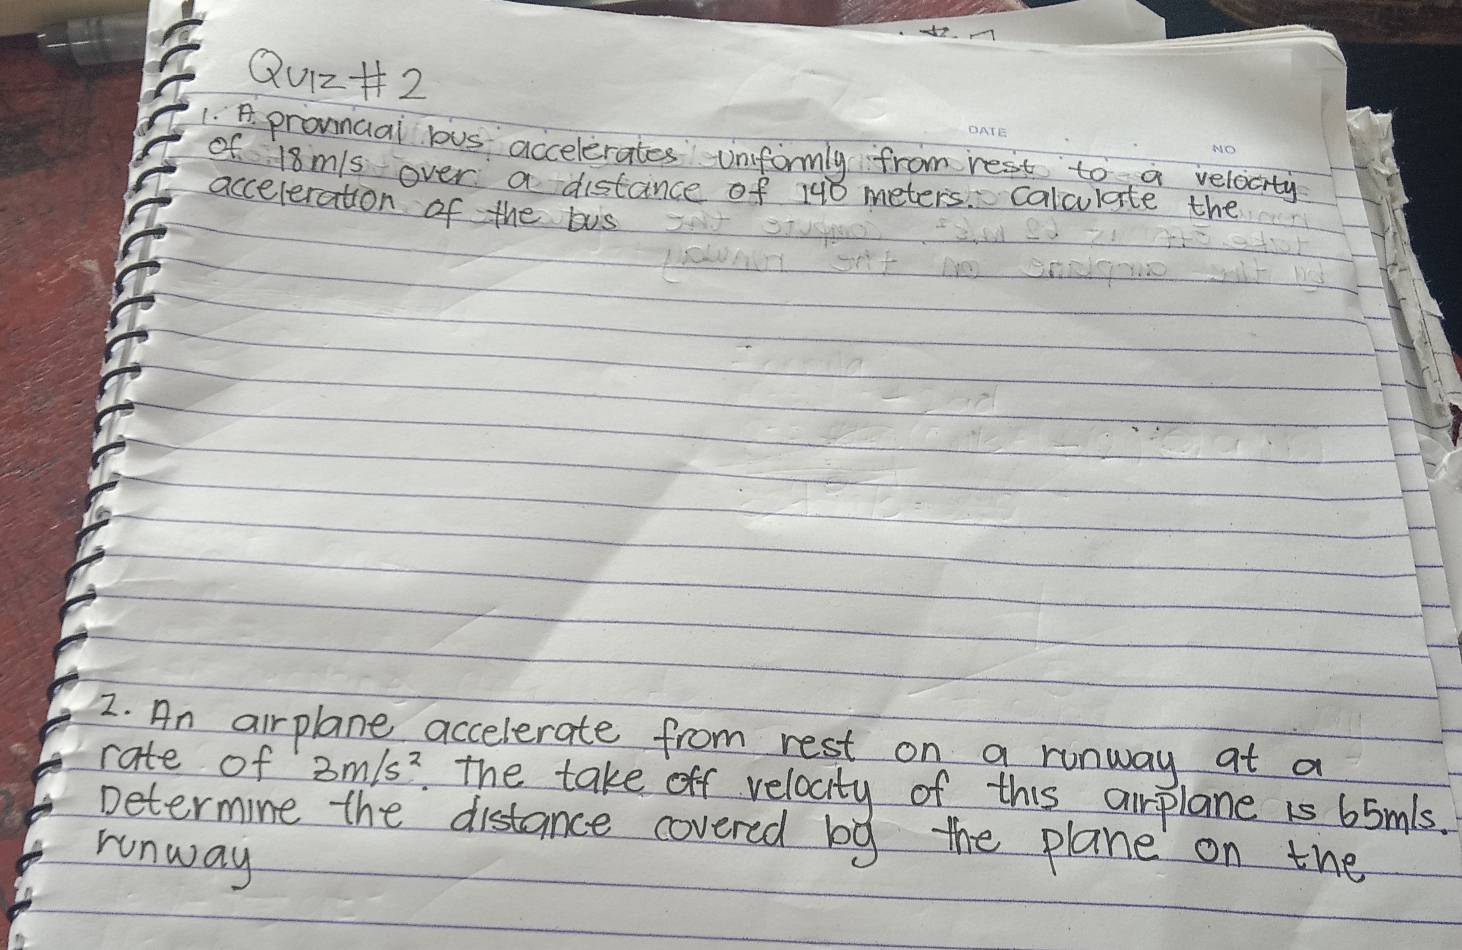 Quiz # 2
DATE
NO
1. A provincial bus accelerates uniformly from rest to a velocity
of 18m/s over a distance of 140 meters. Calculate the
acceleration of the bus
2. An airplane accelerate from rest on a runway at a
rate of 3m/s². The take off velocity of this airplane is 65m/s.
Determine the distance covered by the plane on the
runway